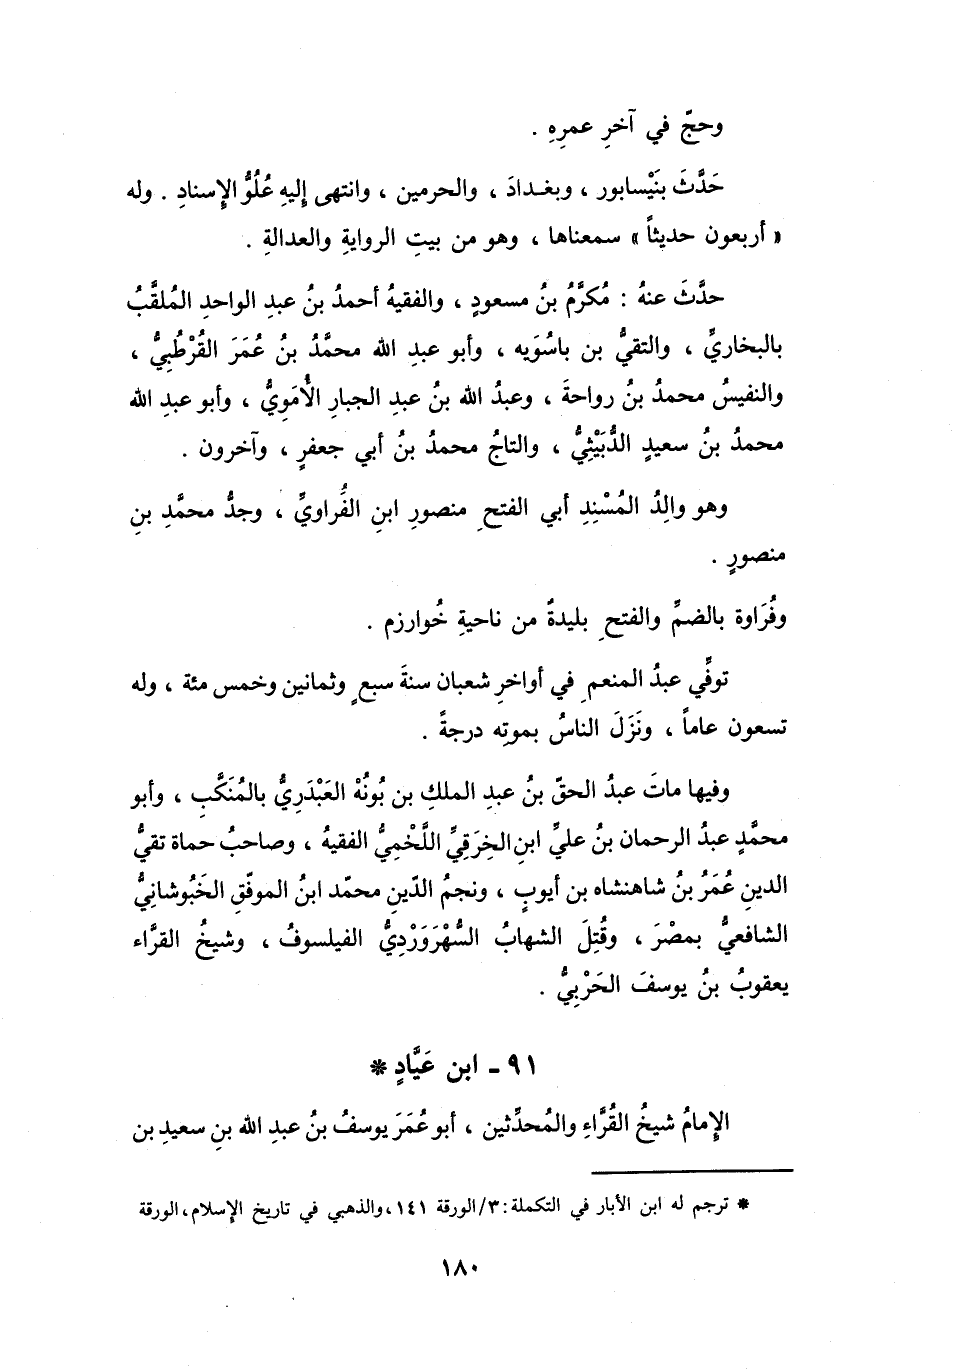 وحجّ في آخرِ عمرِهِ .
حَدَّثَ بنَيْسابور ، وبغـدادَ ، والحرمين ، وانتهى إليهِ عُلُوُّ الإِسنادِ . وله
« أربعون حديثاً » سمعناها ، وهو من بيتِ الروايةِ والعدالةِ .
حدَّثَ عنهُ : مُكرَّمُ بنُ مسعودٍ ، والفقيهُ أحمدُ بنُ عبدِ الواحدِ المُلقَّبُ
بالبخاريِّ ، والتقيُّ بن باسُوَيه ، وأبو عبدِ الله محمَّدُ بنُ عُمَرَ القُرْطُبِيُّ ،
والنفيسُ محمدُ بنُ رواحةَ ، وعبدُ الله بنُ عبدِ الجبارِ الأُمَوِيُّ ، وأبو عبدِ الله
محمدُ بنُ سعيدٍ الدُّبَيْثِيُّ ، والتاجُ محمدُ بنُ أبي جعفرٍ ، وآخرون .
وهو والِدُ المُسْنِدِ أبي الفتحِ منصورِ ابنِ الفُراويِّ ، وجدُّ محمَّدِ بنِ
منصورٍ .
وفُرَاوة بالضمِّ والفتحِ بليدةٌ من ناحيةِ خُوارزم .
توفِّي عبدُ المنعمِ في أواخرِ شعبان سنةَ سبعٍ وثمانين وخمس مئة ، وله
تسعون عاماً ، ونَزَلَ الناسُ بموتِه درجةً .
وفيها ماتَ عبدُ الحقّ بنُ عبدِ الملكِ بن بُونُهْ العَبْدَرِيُّ بالمُنَكَّبِ ، وأبو
محمَّدٍ عبدُ الرحمان بنُ عليِّ ابنِ الخِرَقِيِّ اللَّخْمِيُّ الفقيهُ ، وصاحبُ حماة تقيُّ
الدينِ عُمَرُ بنُ شاهنشاه بن أيوبٍ ، ونجمُ الدّينِ محمّد ابنُ الموفّقِ الخَبُوشانِيُّ
الشافعيُّ بمصْرَ ، وقُتِلَ الشهابُ السُّهْرَوَرْدِيُّ الفيلسوفُ ، وشيخُ القرَّاء
يعقوبُ بنُ يوسفَ الحَرْبِيُّ .
٩١ - ابن عَيَّادٍ *
الإِمامُ شيخُ القُرَّاءِ والمُحدِّثين ، أبو عُمَرَ يوسفُ بنُ عبدِ الله بنِ سعيدِ بن
* ترجم له ابن الأبار في التكملة : ٣/الورقة ١٤١ ، والذهبي في تاريخ الإسلام ، الورقة
١٨٠